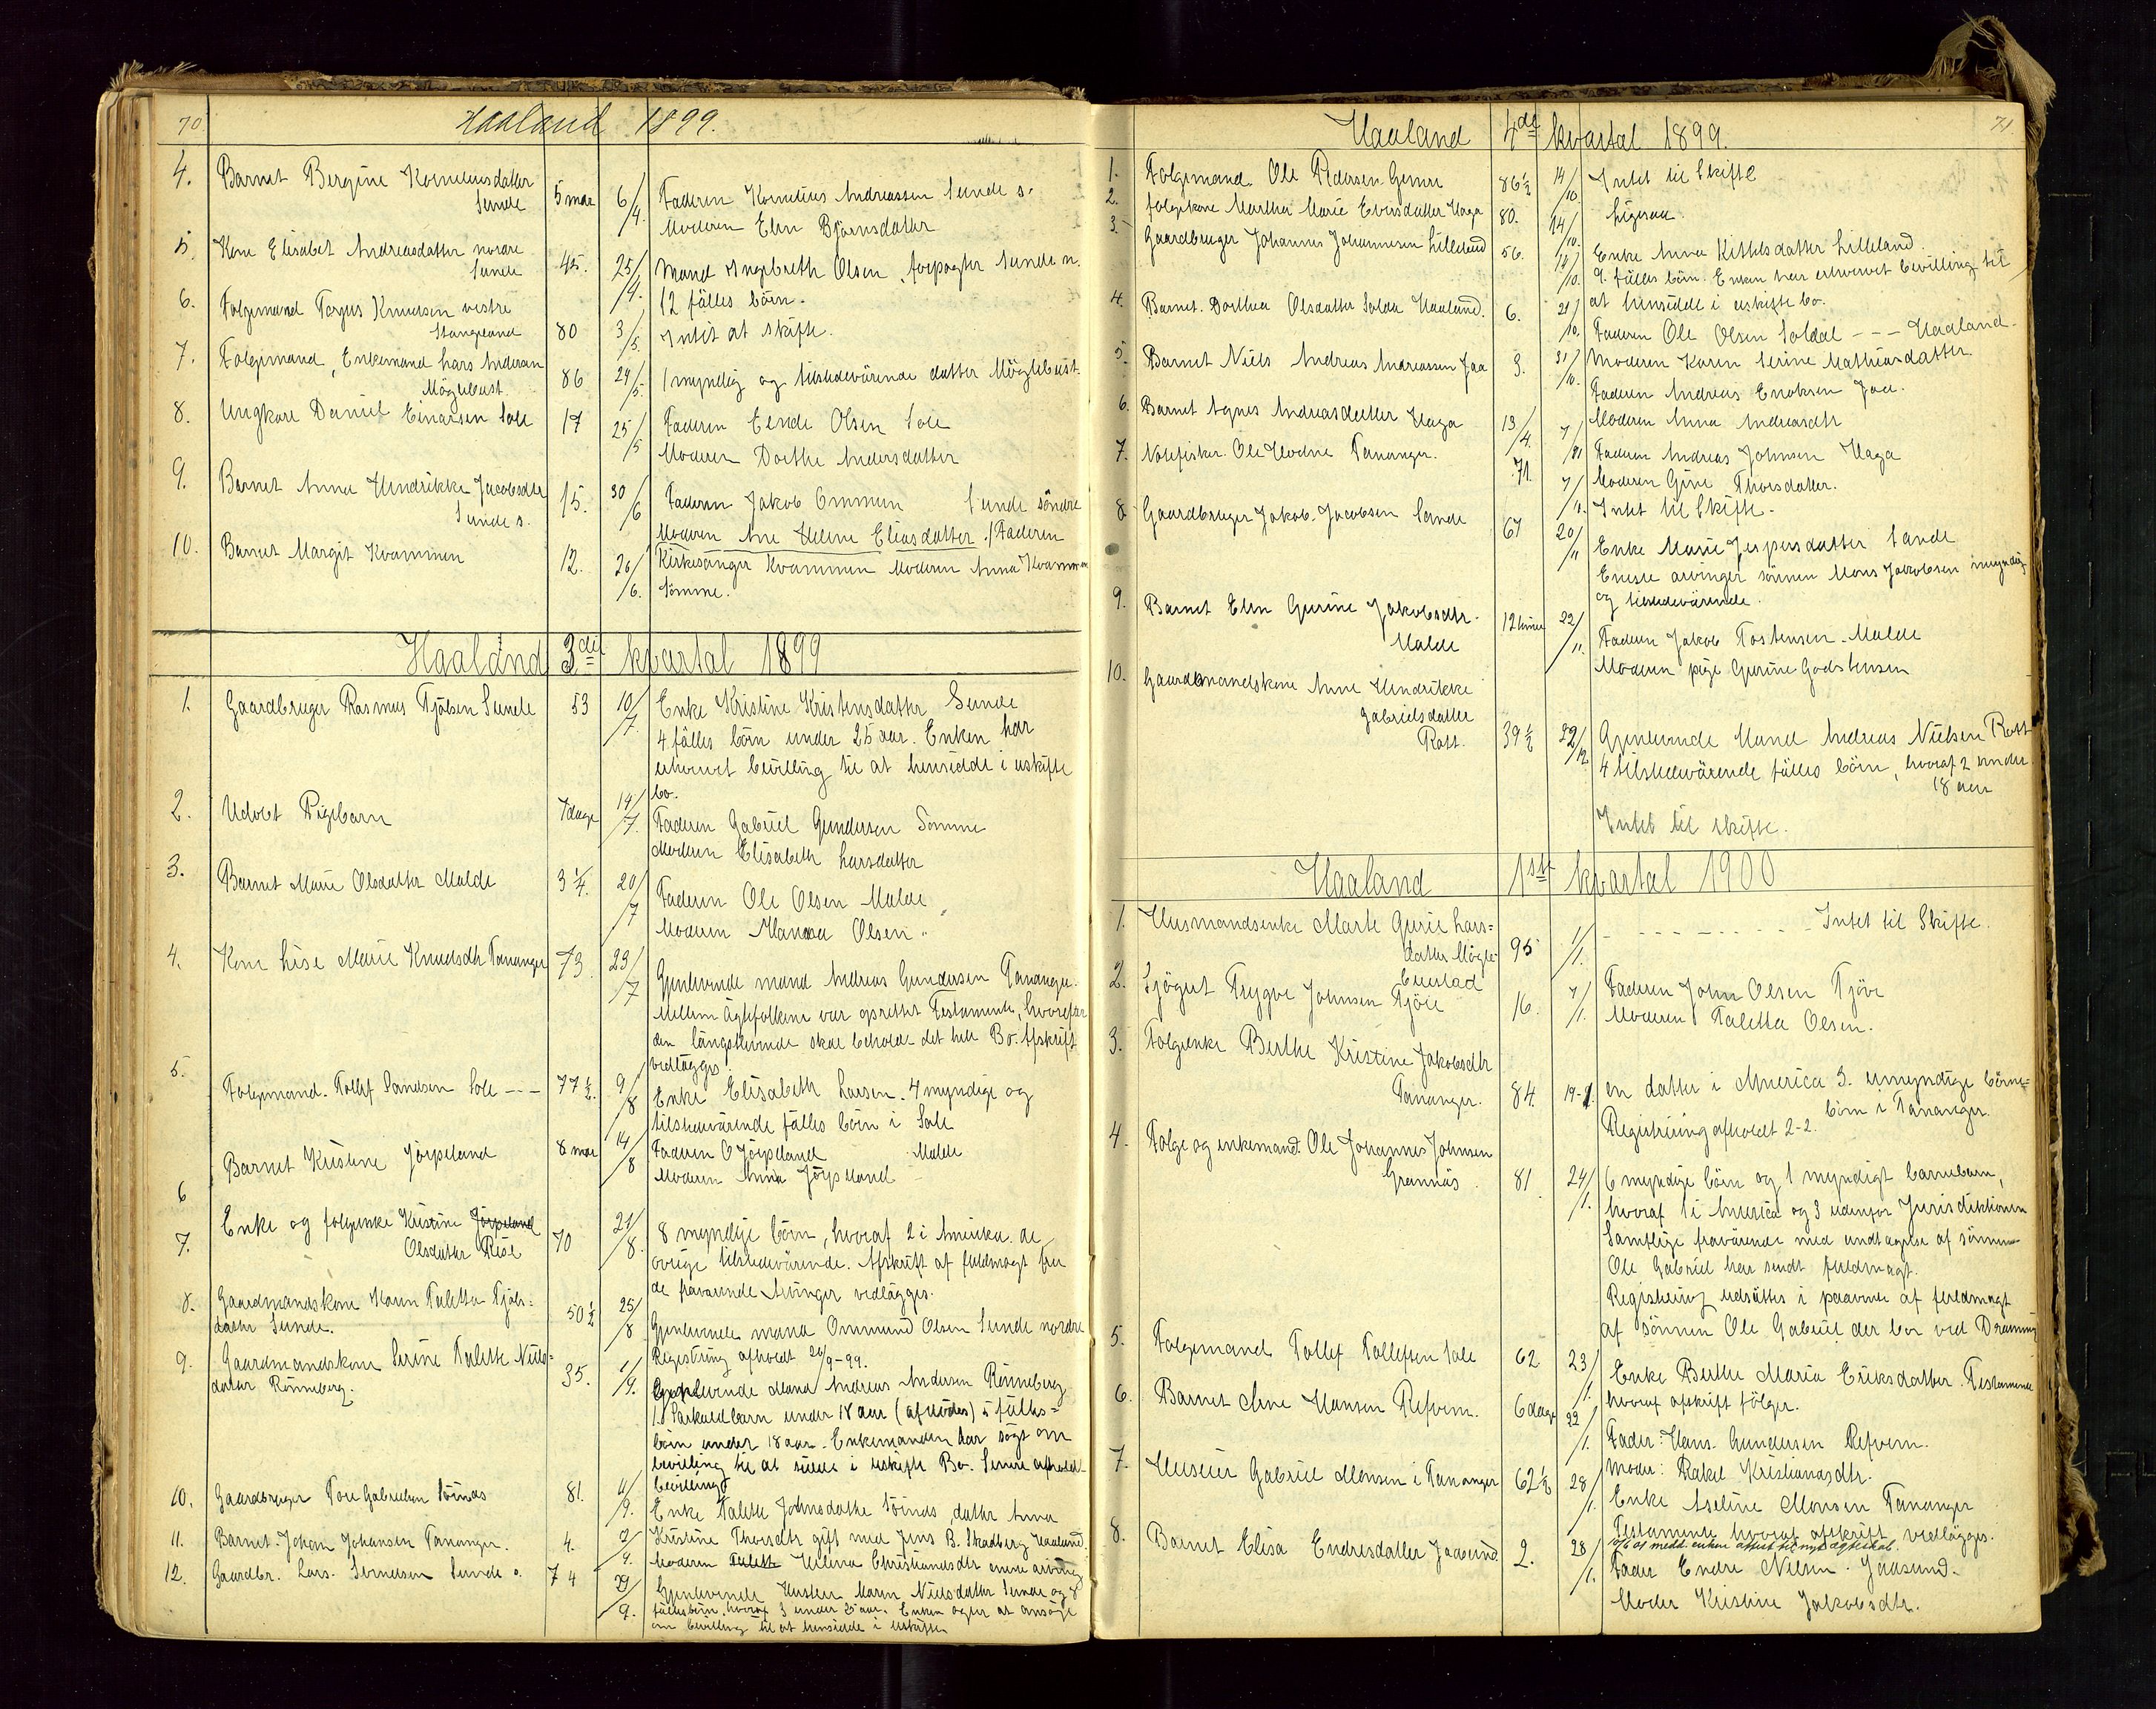 70
Haaland 1899.
4. Barnet Bergine Korneliusdatter
Sunde 5 mdr 6/4. Faderen Kornelius Andreassen Sunde s.
Moderen Elen Björnsdatter
5. Kone Elisabet Andreasdatter nordre
Sunde 45. 25/4. Mand Ingebreth Olsen, forpagter Sunde n.
12 fälles börn.
6. Folgemand Torgus Knudsen vestre
Stangeland 80 3/5. Intet at skifte.
7. Folgemand, Enkemand Lars Andersen
Möglebust. 86 24/5. 1 myndig og tilstedevärende datter Möglebust.
8. Ungkare Daniel Einarsen Sole 17 25/5 Faderen Olsen Sole
Moderen Dorthe Andersdatter
9. Barnet Anna Hendrikke Jacobsdtr
Sunde s. 15. 30/6 Faderen Jakob Ommun Sunde söndre
Moderen Ane Helene Eliasdatter. / Faderen
10. Barnet Margit Kvammen 12. 26/6. Kirkesanger Kvammen Moderen Anna Kvammen
Sömme.
Haaland 3die kvartal 1899
1. Gaardbruger Rasmus Tjölsen Sunde 53 10/7. Enke Kristine Kristensdatter Sunde
4 fälles börn under 25 aar. Enken har
erhvervet bevilling til at hensidde i uskifte
bo.
2. Udöbt Pigebarn 7 dage 14/7. Faderen Gabriel Gundersen Sömme
Moderen Elisabeth Larsdatter
3. Barnet Marie Olsdatter Malde 3 1/4. 20/7 Faderen Ole Olsen Malde
Moderen Hanna Olsen "
4. Kone Lise Marie Knudsdtr Tananger 73. 23/7 Gjenlevende mand Andreas Gundersen Tananger.
Mellem ägtefolkene var oprettet Testamente, hvorefter
den längstlevende skal beholde det hele Bo. Afskrift
vedlägges.
5. Folgemand. Tollef Sandsen Sole --- 77 1/2. 9/8 Enke Elisabeth Larsen. 4 myndige og
tilstedevärende fälles börn i Sole
Barnet Kristine Jörpeland 8 mdr 14/8 Faderen O Jörpeland Malde
Moderen Anna Jörpeland
6
7. Enke og folgeenke Kristine Jörpeland
Olsdatter Risl 70 21/8. 8 myndige börn, hvoraf 2 i Amerika. de
övrige tilstedevärende. Afskrift af fuldmagt fra
de fraværende Arvinger vedlägges.
8. Gaardmandskone Karen Taletta Tjöls=
datter Sunde. 50 1/2 25/8 Gjenlevende mand Ommund Olsen Sunde nordre
Registring afholdt 20/9-99.
9. Gaardmandskone Serine Talette Niels=
datter Rönneberg. 35. 1/9. Gjenlevende Mand Andreas Andersen Rönneberg
1. Särkuldbarn under 18 aar (afdödes) 5 fälles=
börn under 18 aar. Enkemanden har sögt om
bevilling til at sidde i uskifte Bo. Senere
bevilling
10. Gaardbruger Tore Gabrielsen 81. 11/9. Enke Talette Johnsdatter datter Anna
Kristine Thorsdtr gift med Jens B. Skadberg Haaland.
11. Barnet. Johan Johansen Tananger. 4. 2/9. Moderen Talette Helena Christiansdtr eneste arving
12. Gaardbr. Lars. Svendsen Sunde s. 74 29/9. Gjenlevende Hustru Maren Nielsdatter Sunde og 8
fällesbörn, hvoraf 3 under 25 aar. Enken agter at ansöge
om bevilling til at hensidde i uskifte.
71.
Haaland 4de kvartal 1899.
1. Folgemand. Ole Pedersen Gimre 86 1/2 14/10. Intet til Skifte
2. Folgekone Martha Marie Eversdatter Haga 80. 14/10. Ligesaa.
3. Gaardbruger Johannes Johannesen Lilleland 56. 18/10. Enke Anna Kittelsdatter Lilleland.
9. fälles börn. Enken har erhvervet bevilling til
at hensidde i uskifte bo.
4. Barnet. Dorthea Olsdatter Soldal Haaland. 6. 21/10. Faderen Ole Olsen Soldal --- Haaland.
Moderen Karen Serine Mathiasdatter.
5. Barnet Niels Andreas Andreassen Jaa 3. 31/10. Faderen Andreas Enoksen Jaa.
Moderen Anna Andreasdtr
6. Barnet Agnes Andreasdatter Haga 13/4. 7/11 Faderen Andreas Johnsen Haga
Moderen Gine Thorsdatter.
7. Notefisker. Ole Hodne Tananger. 71. 7/11. Intet til Skifte.
8 Gaardbruger Jakob. Jacobsen Sande 67 20/11 Enke Marie Jespersdatter Sande
Eneste arvinger sönnen Mons Jakobsen myndig
og tilstedevärende.
9. Barnet Elen Gurine Jakobsdtr.
Malde 12 timer 22/11. Faderen Jakob Tostensen. Malde
Moderen pige Gurine Godstensen
10. Gaardmandskone Anne Hendrikke
Gabrielsdatter
Rott. 39 1/2 22/12. Gjenlevende Mand Andreas Nielsen Rott
4 tilstedevärende fälles börn, hvoraf 2 under
18 aar
Intet til skifte.
Haaland 1ste kvartal 1900
1. Husmandsenke Marte Gurie Lars=
datter Mögle-
bustad 95 1/1. - - - - - Intet til Skifte.
2. Sjögut Trygve Johnsen Tjöie 16. 7/1. Faderen John Olsen Tjöve
Moderen Taletta Olsen.
3. Folgeenke Berthe Kristine Jakobsdtr
Tananger. 84. 19-1. en datter i America 3. umyndige börne=
börn i Tananger.
Registrering afholdt 2-2.
4. Folge og enkemand. Ole Johannes Johnsen
Grannäs. 81. 24/1. 6 myndige börn og 1 myndigt barnebarn,
hvoraf 1 i America og 3 udenfor Jurisdiktionen
Samtlige fravärende med undtagelse af sönnen
Ole Gabriel har sendt fuldmagt.
Registrering udsättes i paavente af fuldmagt
af sönnen Ole Gabriel der bor ved Drammen
5. Folgemand Tollef Tollefsen Sole 62 23/1. Enke Berthe Maria Eriksdatter. Testamente
hvoraf afskrift fölger.
6. Barnet Arne Hansen Refsem. 6 dage 22/1. Fader: Hans. Gundersen Refsem.
Moder: Rakel Kristiansdtr.
7. Huseier Gabriel Monsen i Tananger 62 1/2 28/1. Enke Aseline Monsen Tananger
Testamente hvoraf afskrift vedlägges.
8. Barnet Elisa Endresdatter Jaasund 2. 28/1. Fader Endre Nilsen. Jaasund.
Moder Kristine Jakobsdtr.